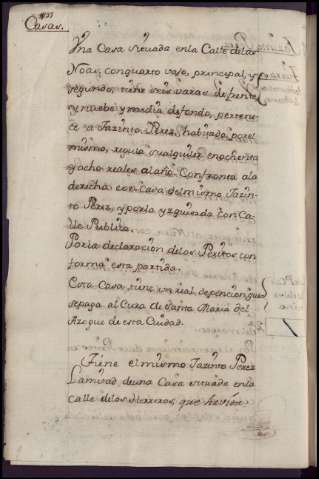 Casas.
Una Casa situada en la Calle de las
Noas, con quarto vajo, principal, y
segundo, tiene seis varas de frente
y nuebe y media de fondo, pertene
ce a Jazinto Perez, habitada por el
mismo, regula su alquiler en ochenta
y ocho reales al año. Confronta ala
derecha con Casa del mismo Jazin-
to Perez, y por la yzquierda con Ca-
lle Publica.
Por la declaracion de los Peritos con
forma esta partida.
Esta Casa tiene un real de pencion que
se paga al Cura de Santa Maria del
Azogue de esta Ciudad.
Tiene el mismo Jazinto Perez
la mitad de una Casa situada en la
Calle de los Herreros, que